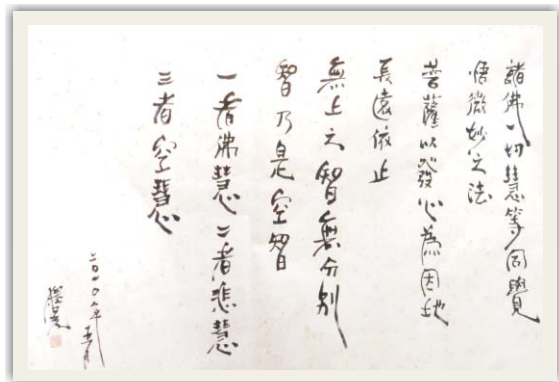 諸佛一切慧等同覺
悟微妙之法
菩薩以發心為因地
長遠依止
無上之智無分別
智乃是空智
一者佛慧二者悲慧
三者空慧
二〇一〇年五月